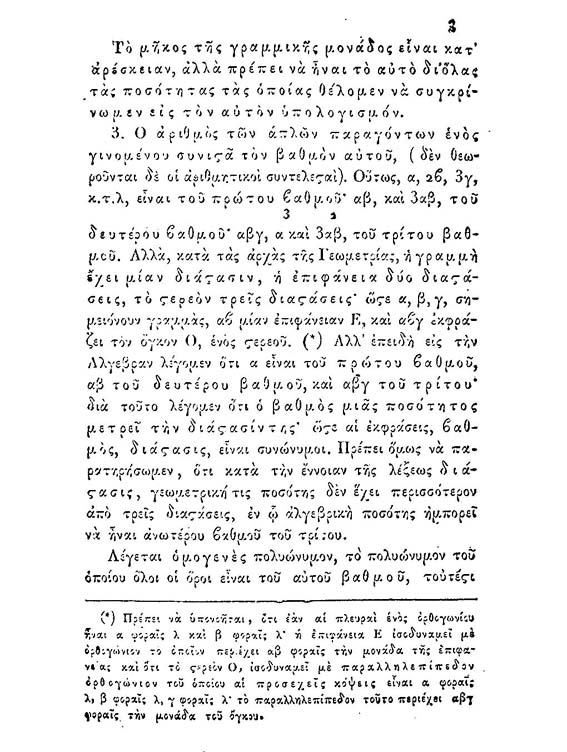 3
Τὸ μῆκος τῆς γραμμικῆς μονάδος εἶναι κατ'
ἀρέσκειαν, ἀλλὰ πρέπει νὰ ἦναι τὸ αὐτὸ διόλας
τὰς ποσότητας τὰς ὁποίας θέλομεν νὰ συγκρί-
νωμεν εἰς τὸν αὐτὸν ὑπολογισμόν.
3. Ὁ ἀριθμὸς τῶν ἁπλῶν παραγόντων ἑνὸς
γινομένου συνιςᾷ τὸν βαθμὸν αὐτοῦ, (δὲν θεω-
ροῦνται δὲ οἱ ἀριθμητικοὶ συντελεςαὶ). Οὕτως, α, 2ϐ, 3γ,
κ.τ.λ, εἶναι τοῦ πρώτου ϐαθμοῦ· αβ, καὶ 3αβ, τοῦ
3 2
δευτέρου ϐαθμοῦ· αβγ, α καὶ 3αβ, τοῦ τρίτου βαθ-
μοῦ. Ἀλλὰ, κατὰ τὰς ἀρχὰς τῆς Γεωμετρίας, ἡ γραμμὴ
ἔχει μίαν διάςασιν, ἡ ἐπιφάνεια δύο διαςά-
σεις, τὸ ςερεὸν τρεῖς διαςάσεις· ὥςε α, β, γ, ση-
μειόνουν γραμμὰς, αϐ μίαν ἐπιφάνειαν Ε, καὶ αϐγ ἐκφρά-
ζει τὸν ὄγκον Ο, ἑνὸς ςερεοῦ. (*) Ἀλλ' ἐπειδὴ εἰς τὴν
Αλγεβραν λέγομεν ὅτι α εἶναι τοῦ πρώτου ϐαθμοῦ,
αβ τοῦ δευτέρου βαθμοῦ, καὶ αβγ τοῦ τρίτου·
διὰ τοῦτο λέγομεν ὅτι ὁ βαθμὸς μιᾶς ποσότητος
μετρεῖ τὴν διάςασίντης· ὥςε αἱ ἐκφράσεις, ϐαθ-
μὸς, διάςασις, εἶναι συνώνυμοι. Πρέπει ὅμως νὰ πα-
ρατηρήσωμεν, ὅτι κατὰ τὴν ἔννοιαν τῆς λέξεως διά-
ςασις, γεωμετρική τις ποσότης δὲν ἔχει περισσότερον
ἀπὸ τρεῖς διαςάσεις, ἐν ᾧ ἀλγεβρικὴ ποσότης ἠμπορεῖ
νὰ ἦναι ἀνωτέρου ϐαθμοῦ τοῦ τρίτου.
Λέγεται ὁμογενὲς πολυώνυμον, τὸ πολυώνυμον τοῦ
ὁποίου ὅλοι οἱ ὅροι εἶναι τοῦ αὐτοῦ βαθμοῦ, τουτέςι
(*) Πρέπει νὰ ὑπονοῆται, ὅτι ἐὰν αἱ πλευραὶ ἑνὸς ὀρθογωνίου
ἦναι α φοραῖς λ καὶ β φοραῖς λ· ἡ ἐπιφάνεια Ε ἰσοδυναμεῖ μὲ
ὀρθογώνιον τὸ ὁποῖον περιέχει αβ φοραῖς τὴν μονάδα τῆς ἐπιφα-
νείας καὶ ὅτι τὸ ςερεὸν Ο, ἰσοδυναμεῖ μὲ παραλληλεπίπεδον
ὀρθογώνιον τοῦ ὁποίου αἱ προσεχεῖς κόψεις εἶναι α φοραῖς
λ, β φοραῖς λ, γ φοραῖς λ· τὸ παραλληλεπίπεδον τοῦτο περιέχει αβγ
φοραῖς τὴν μονάδα τοῦ ὄγκου.